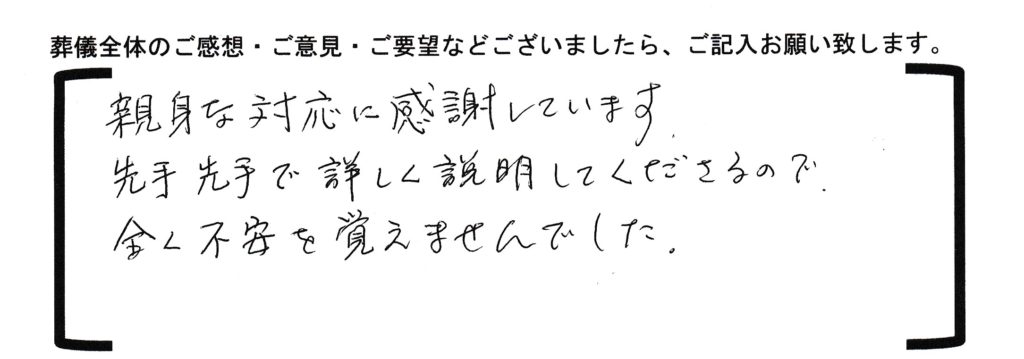 葬儀全体のご感想・ご意見・ご要望などございましたら、ご記入お願い致します。
親身な対応に感謝しています。
先手先手で詳しく説明してくださるので、
全く不安を覚えませんでした。